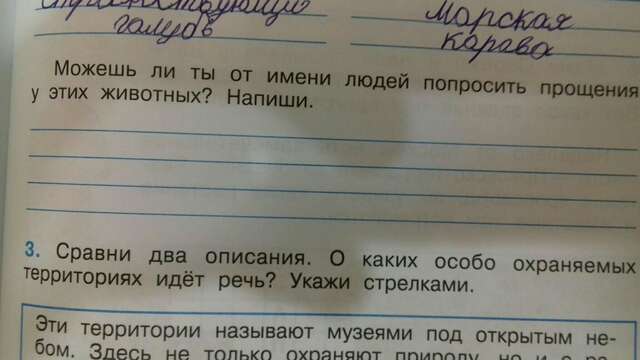 странствующий Морская
голубь карава
Можешь ли ты от имени людей попросить прощения
у этих животных? Напиши.
3. Сравни два описания. О каких особо охраняемых
территориях идёт речь? Укажи стрелками.
Эти территории называют музеями под открытым не-
бом. Здесь не только охраняют природу, но и